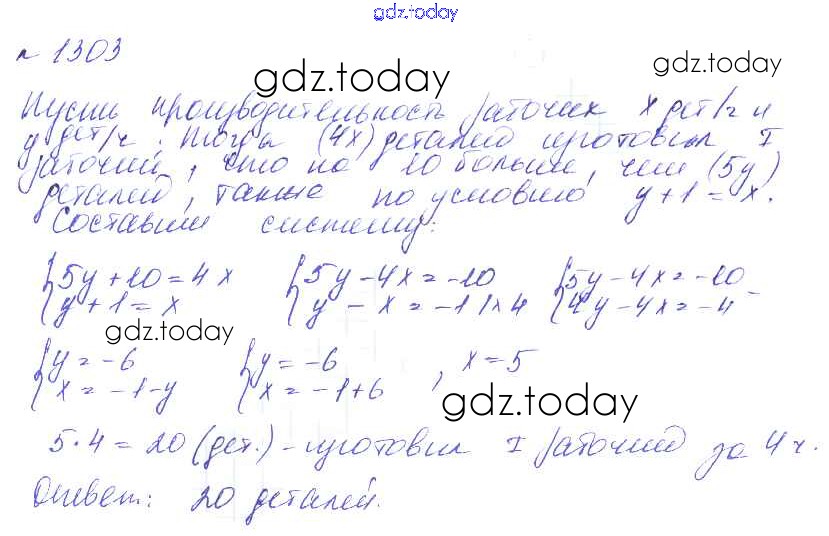 gdz.today
№ 1303
gdz.today
gdz.today
Пусть производительность рабочих x дет/ч и
y дет/ч. Тогда (4x) деталей изготовил I
рабочий, что на 10 больше, чем (5y)
деталей, также по условию y+1=x.
Составим систему:
{5y+10=4x {5y-4x=-10 {5y-4x=-10 -
{y+1=x {y-x=-1 |·4 {4y-4x=-4
gdz.today
{y=-6 {y=-6 , x=5
{x=-1-y {x=-1+6
gdz.today
5·4=20 (дет.) - изготовил I рабочий за 4 ч.
Ответ: 20 деталей.